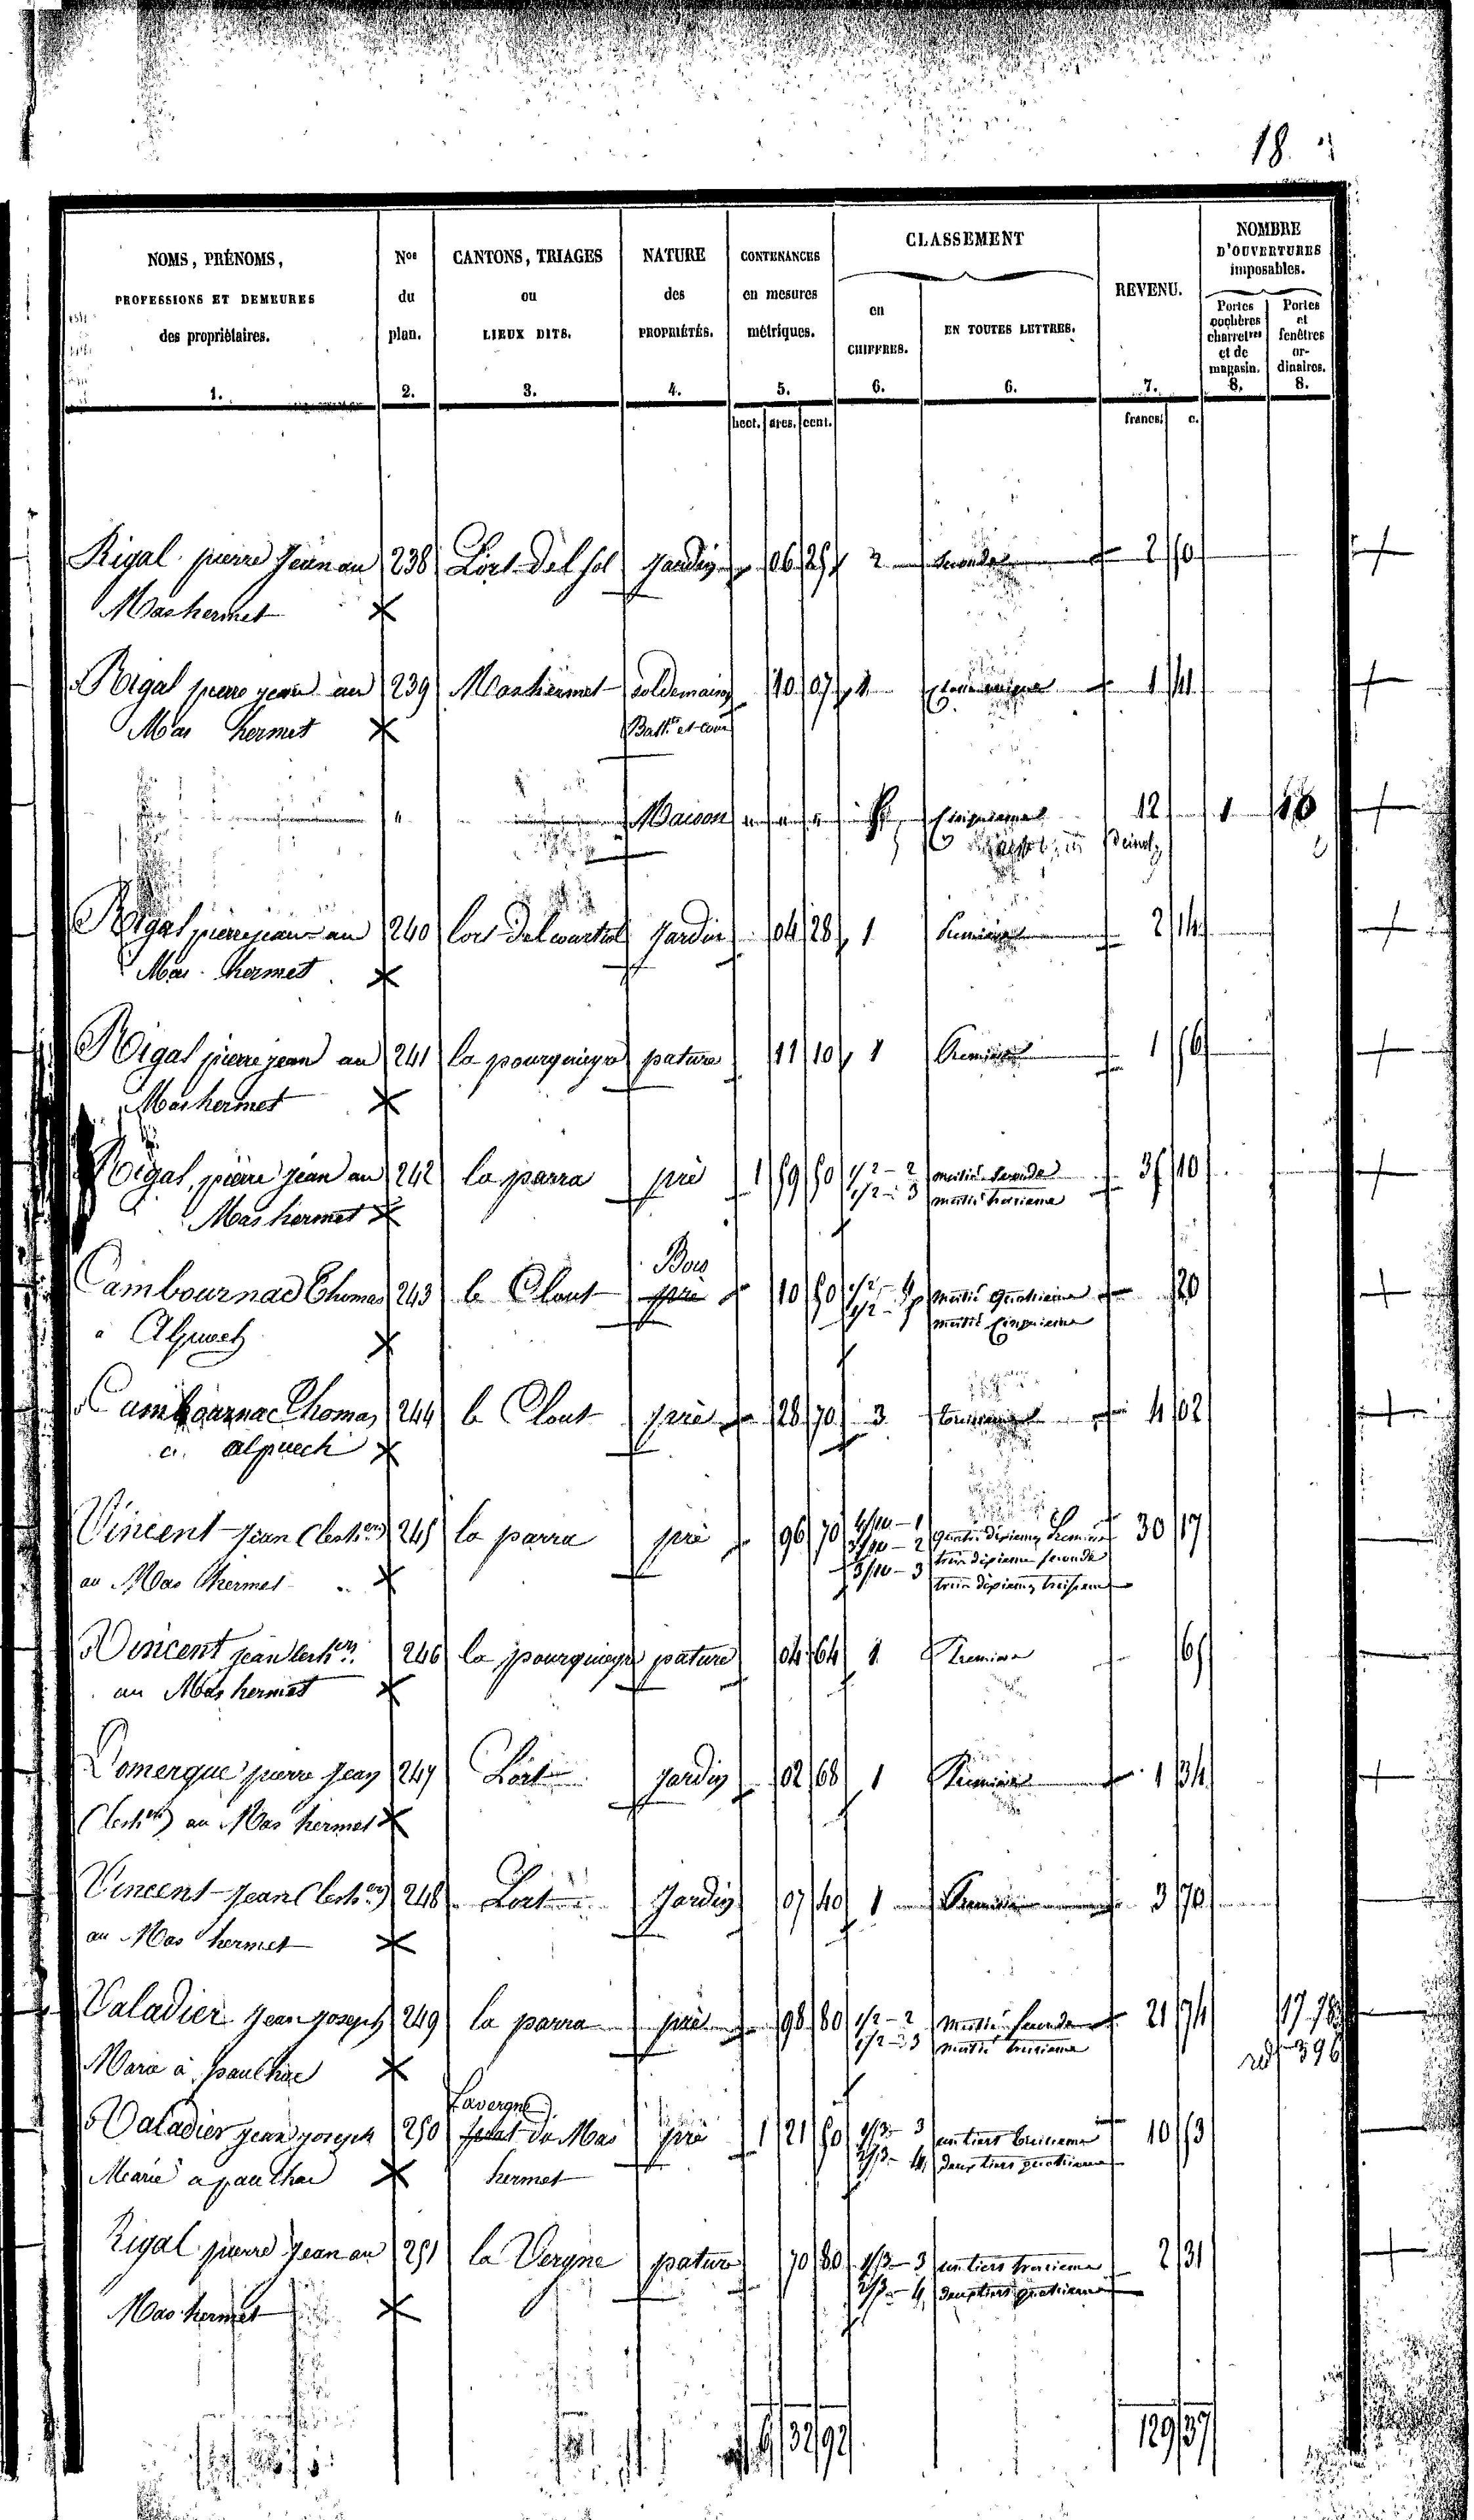 18.
NOMS, PRÉNOMS, PROFESSIONS ET DEMEURES des propriétaires. 1.
Nos du plan. 2.
CANTONS, TRIAGES ou LIEUX DITS. 3.
NATURE des PROPRIÉTÉS. 4.
CONTENANCES en mesures métriques. 5.
CLASSEMENT
en CHIFFRES. 6.
EN TOUTES LETTRES. 6.
REVENU. 7.
NOMBRE D'OUVERTURES imposables.
Portes cochères charretres et de magasin. 8.
Portes et fenêtres ordinaires. 8.
hect. ares. cent. francs. c.
Rigal pierre Jean au 238 Lort Del sol Jardin 06 25 2 seconde 2 50
Mas hermet
Rigal pierre jean au 239 Mas hermet sol de maison 10 07 1 Classe unique 1 41
Mas hermet Batt. et cour
Maison Cinquieme 12 1
Rigal pierre jean au 240 jardin 04 28 1 Premiere 2 14
Mas hermet
Rigal pierre jean au 241 la pourquieyre pature 11 10 1 Premiere 1 56
Mas hermet
Rigal pierre jean au 242 la parra pré 1 59 50 1/2 - 2 moitié seconde 35 10
Mas hermet 1/2 - 3 moitié troisieme
Bois
Cambournac Thomas 243 le Clout pré 10 50 1/2 - 4 moitié quatrieme 20
à Alpuech 1/2 - 5 moitié cinquieme
Cambournac Thomas 244 le Clout pré 28 70 3 troisieme 4 02
a alpuech
Vincent Jean Clerk.en 245 la parra pré 96 70 4/10 - 1 quatre dixiemes Premiere 30 17
3/10 - 2 trois dixieme seconde
au Mas hermet 3/10 - 3 trois dixiemes troisieme
Vincent jean 246 la pourquieyre pature 04 64 1 Premiere 65
au Mas hermet
Domergue pierre Jean 247 Lort Jardin 02 68 1 Premiere 1 34
au Mas hermet
Vincent Jean 248 Lort Jardin 07 40 1 Premiere 3 70
au Mas hermet
Valadier Jean joseph 249 la parra pré 98 80 1/2 - 2 moitié seconde 21 74
1/2 - 3 moitié troisieme
Marie à paulhac
Lavergne
Valadier jean joseph 250 du Mas pré 1 21 50 1/3 - 3 un tiers troisieme 10 53
Marie a paulhac hermet 2/3 - 4 deux tiers quatrieme
Rigal pierre Jean au 251 la Vergne pature 70 80 1/3 - 3 un tiers troisieme 2 31
2/3 - 4 deux tiers quatrieme
Mas hermet
6 32 92 129 37